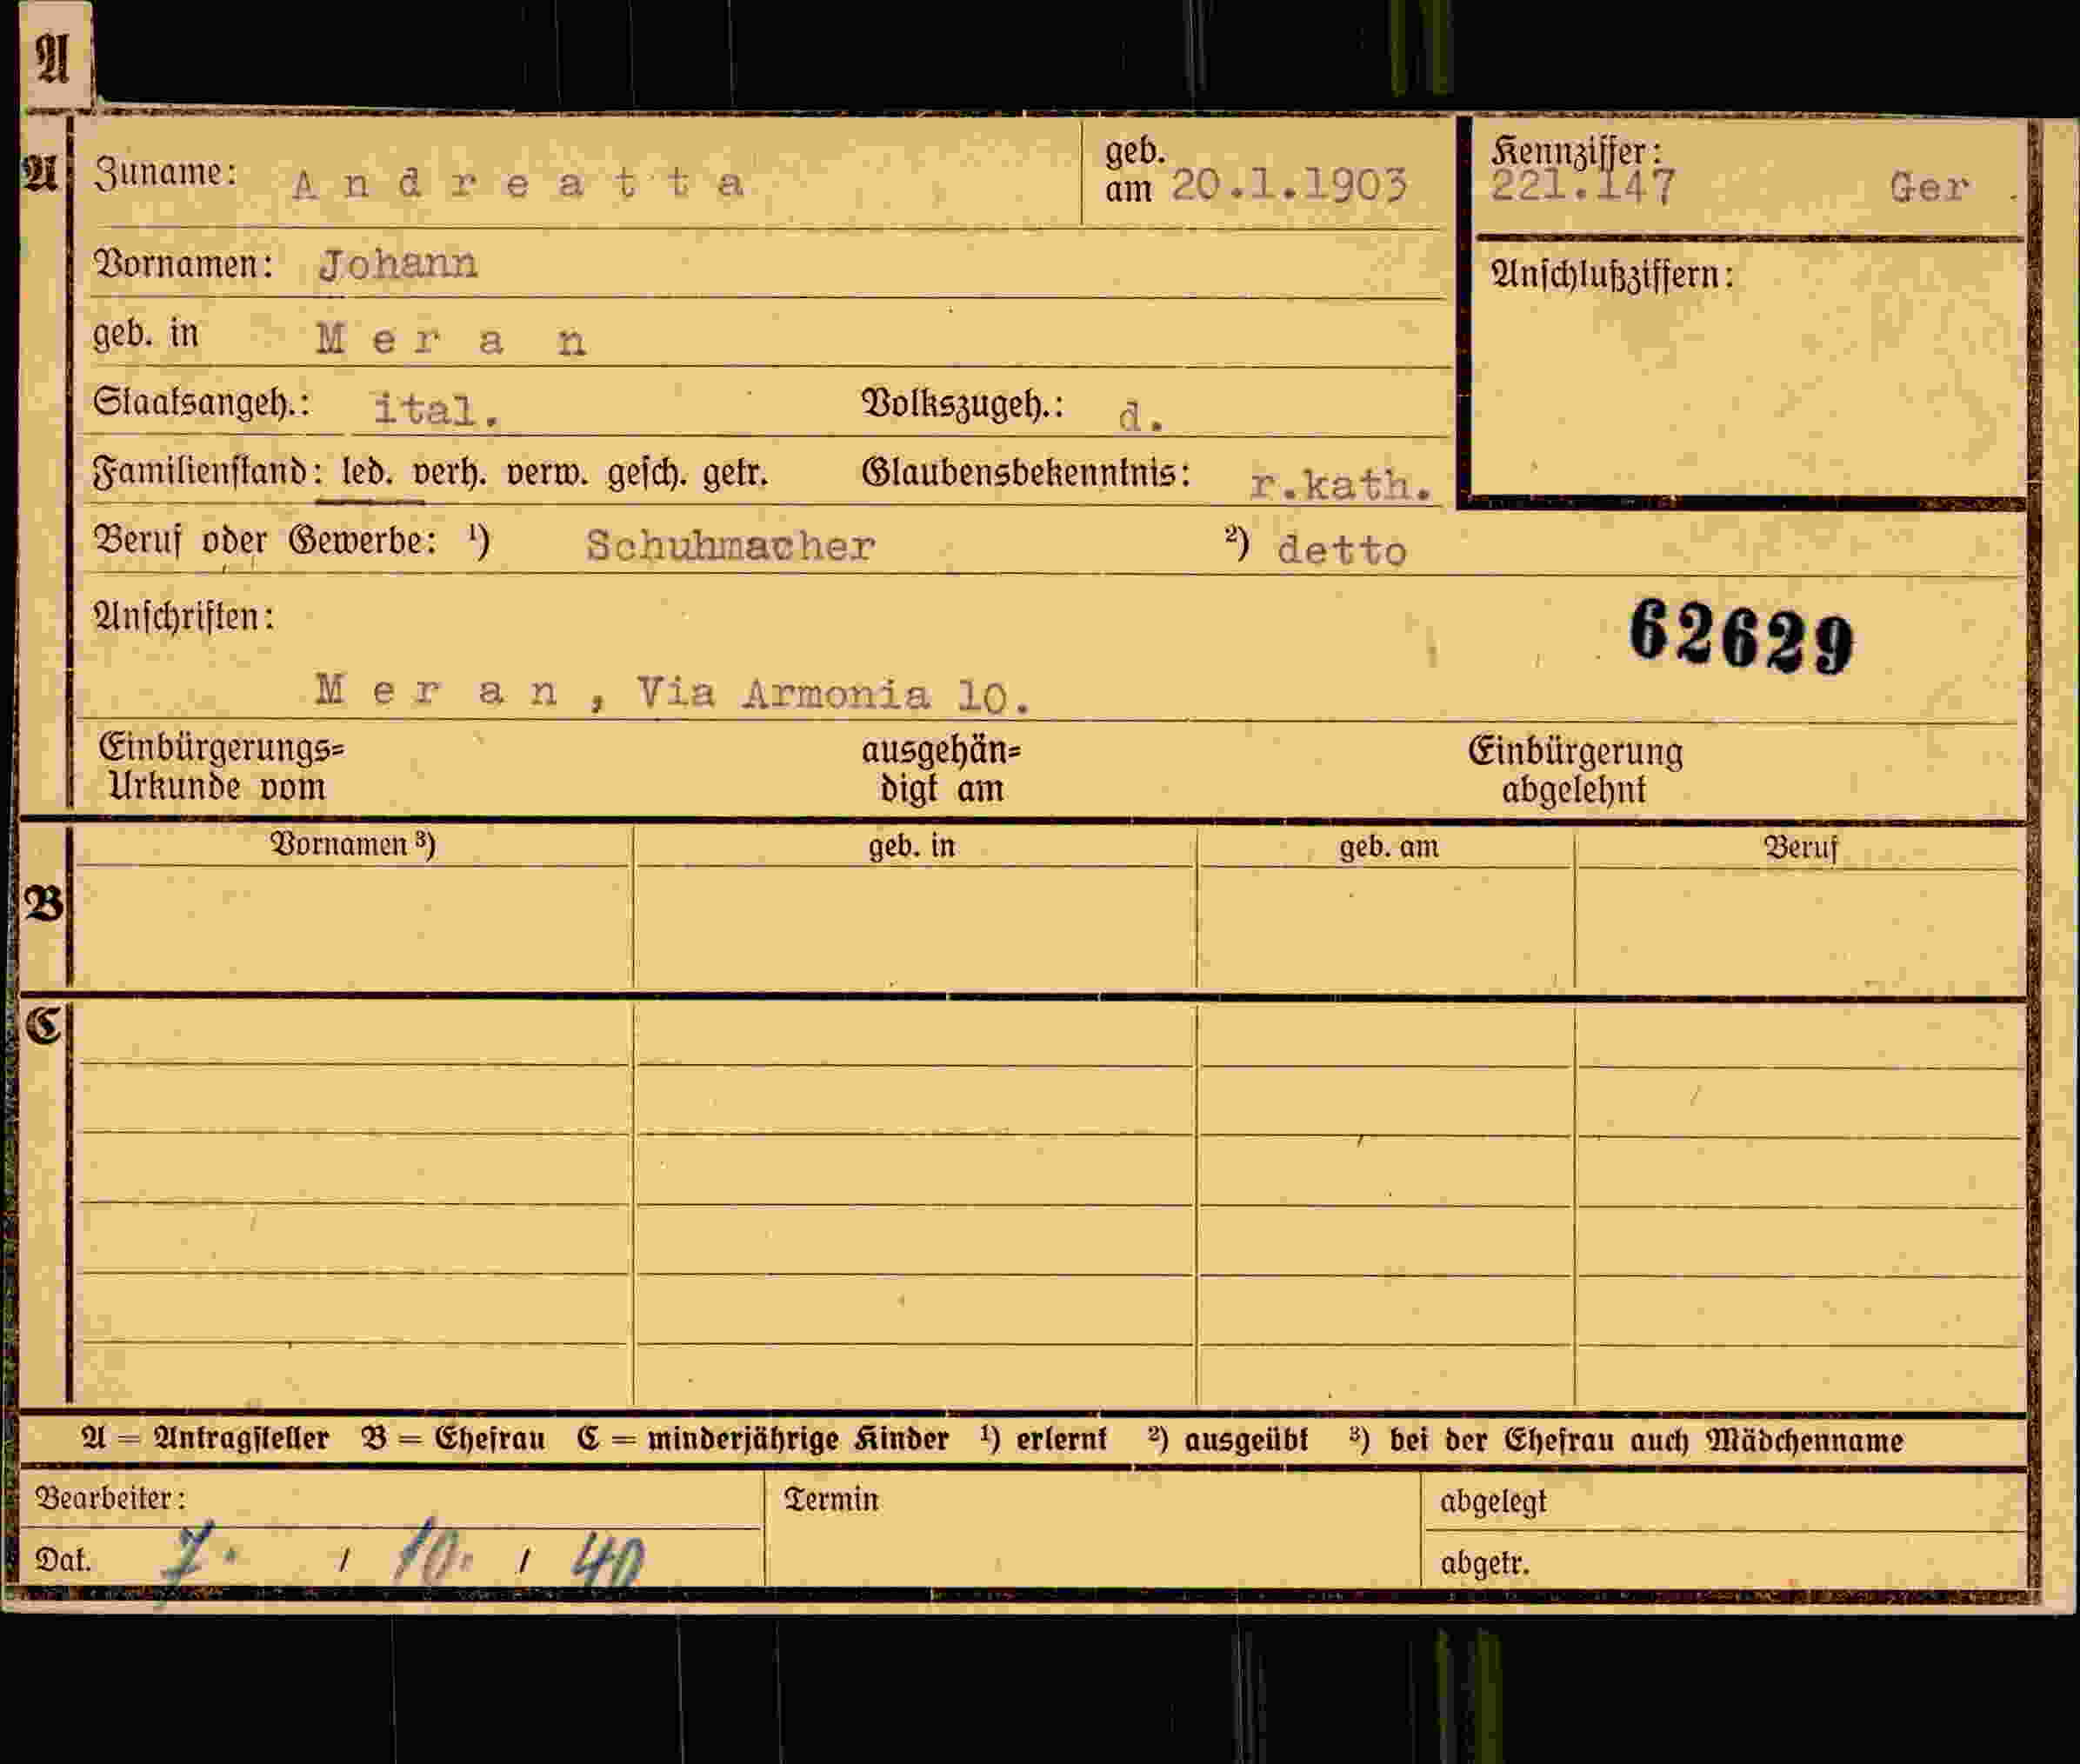 A
A
Zuname: Andreatta
geb. am 20.1.1903
Kennziffer: 221.147 Ger
Vornamen: Johann
Anschlußziffern:
geb. in Meran
Staatsangeh.: ital. Volkszugeh.: d.
Familienstand: led. verh. verw. gesch. getr. Glaubensbekenntnis: r.kath.
Beruf oder Gewerbe: ¹) Schuhmacher ²) detto
Anschriften:
62629
Meran, Via Armonia 10.
Einbürgerungs= ausgehän= Einbürgerung
Urkunde vom digt am abgelehnt
Vornamen ³) geb. in geb. am Beruf
B
C
A = Antragsteller B = Ehefrau C = minderjährige Kinder ¹) erlernt ²) ausgeübt ³) bei der Ehefrau auch Mädchenname
Bearbeiter: Termin abgelegt
Dat. 7. / 10. / 40 abgetr.